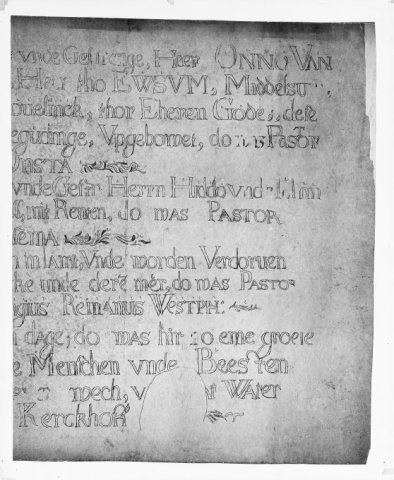 vnde Gestrenge, Heer ONNO VAN
Her tho EWSVM, Middelstu
ouelinck, thor Eheren Godes, dese
egudinge, Vpgebowet, do was PASTOR
VNSTA
vnde Gestr Herrn Hiddo vnd
mit Renten, do was PASTOR
SEMA
n in lamt, Vnde worden Verdoruen
ke unde dere mer, do was PASTO
gius Reinarius WESTPH:
dage; do was hir so eine groete
e Menschen vnde Beesten
wech, v WAter
Kerckhoff